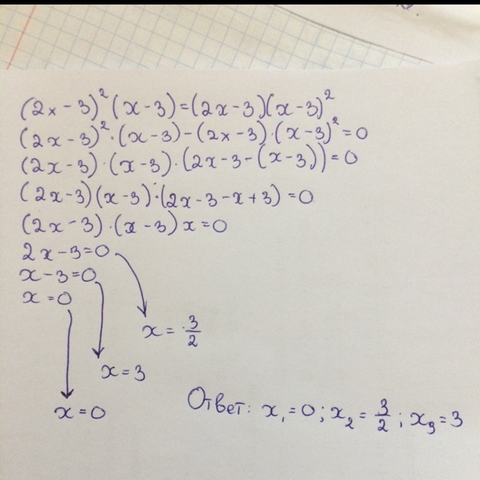 (2x-3)²(x-3)=(2x-3)(x-3)²
(2x-3)²·(x-3)-(2x-3)·(x-3)²=0
(2x-3)·(x-3)·(2x-3-(x-3))=0
(2x-3)(x-3)·(2x-3-x+3)=0
(2x-3)·(x-3)x=0
2x-3=0
x-3=0
x=0
x=3/2
x=3
x=0
Ответ: x₁=0; x₂=3/2; x₃=3